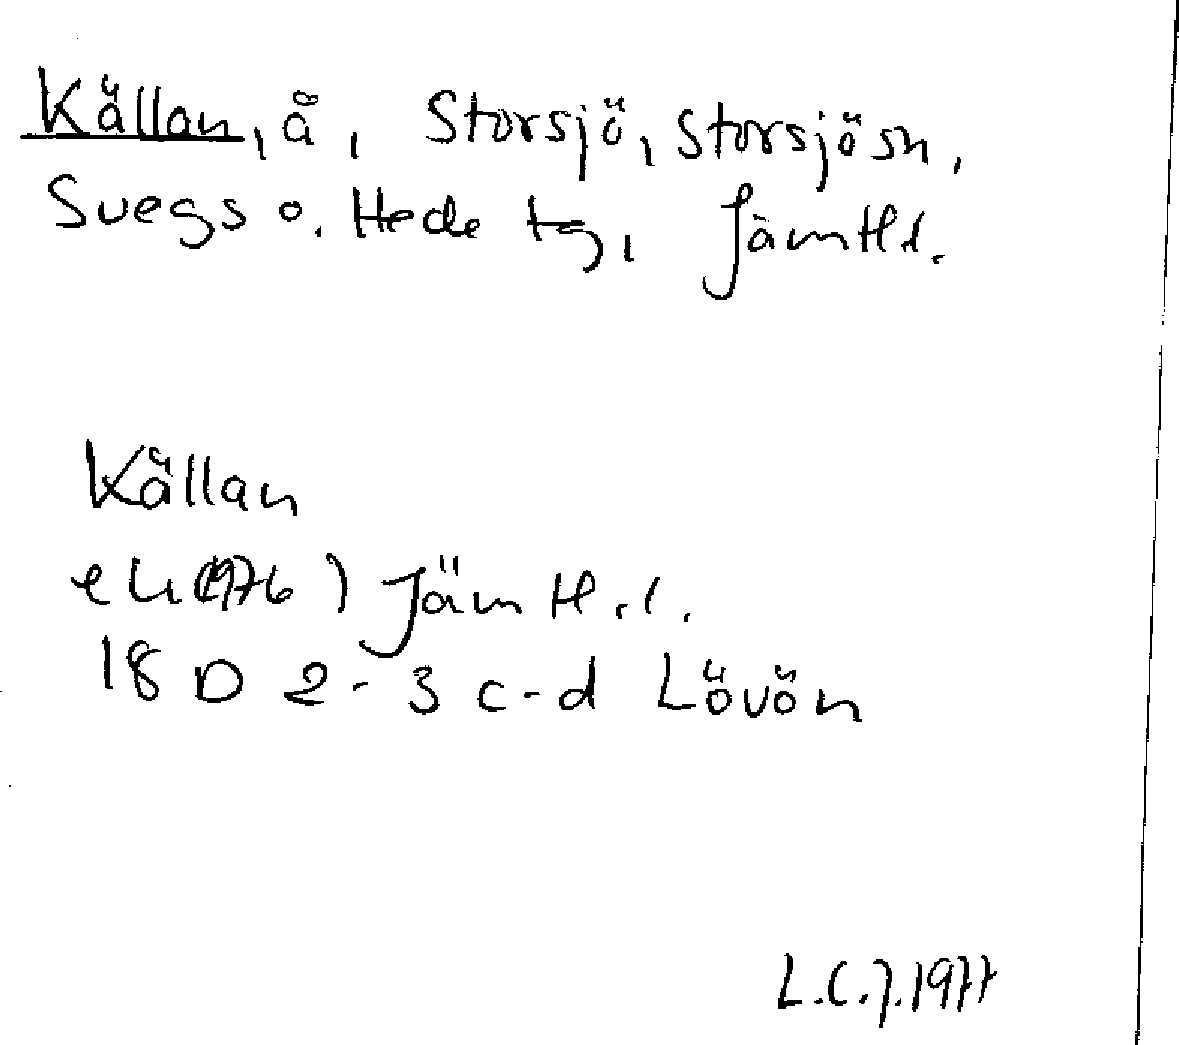 Källan, å, Storsjö, Storsjö sn,
Svegs o. Hede tg, Jämtl l.
Källan
ek (1976) Jämtl. l.
18 D 2-3 c-d Lövön
L.C.J. 1977